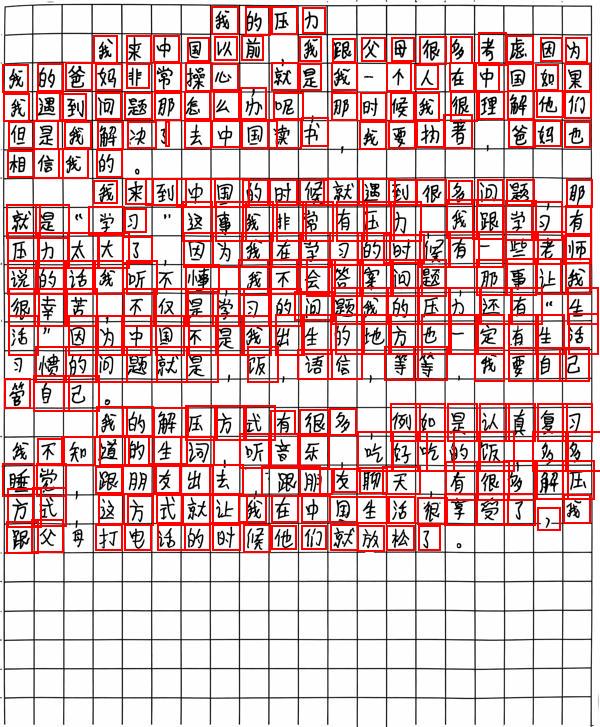 我的压力
我来中国以前,我跟父母很多考虑因为
我的爸妈非常操心,就是我一个人在中国如果
我遇到问题那怎么办呢,那时候我很理解他们
但是我解决了去中国读书,我要执着,爸妈也
相信我的。
我来到中国的时候就遇到很多问题,那
就是“学习”这事我非常有压力,我跟学习有
压力太大了,因为我在学习的时候有一些老师
说的话我听不懂,我不会答案问题,那事让我
很幸苦,不仅是学习的问题我的压力还有“生
活”因为中国不是我出生的地方也一定有生活
习惯的问题就是,饭,语信,等等,我要自己
管自己。
我的解压方式有很多,例如是认真复习
我不知道的生词,听音乐,吃好吃的饭,多多
睡觉,跟朋友出去,跟朋友聊天,有很多解压
方式,这方式就让我在中国生活很享受了,我
跟父母打电话的时候他们就放松了。